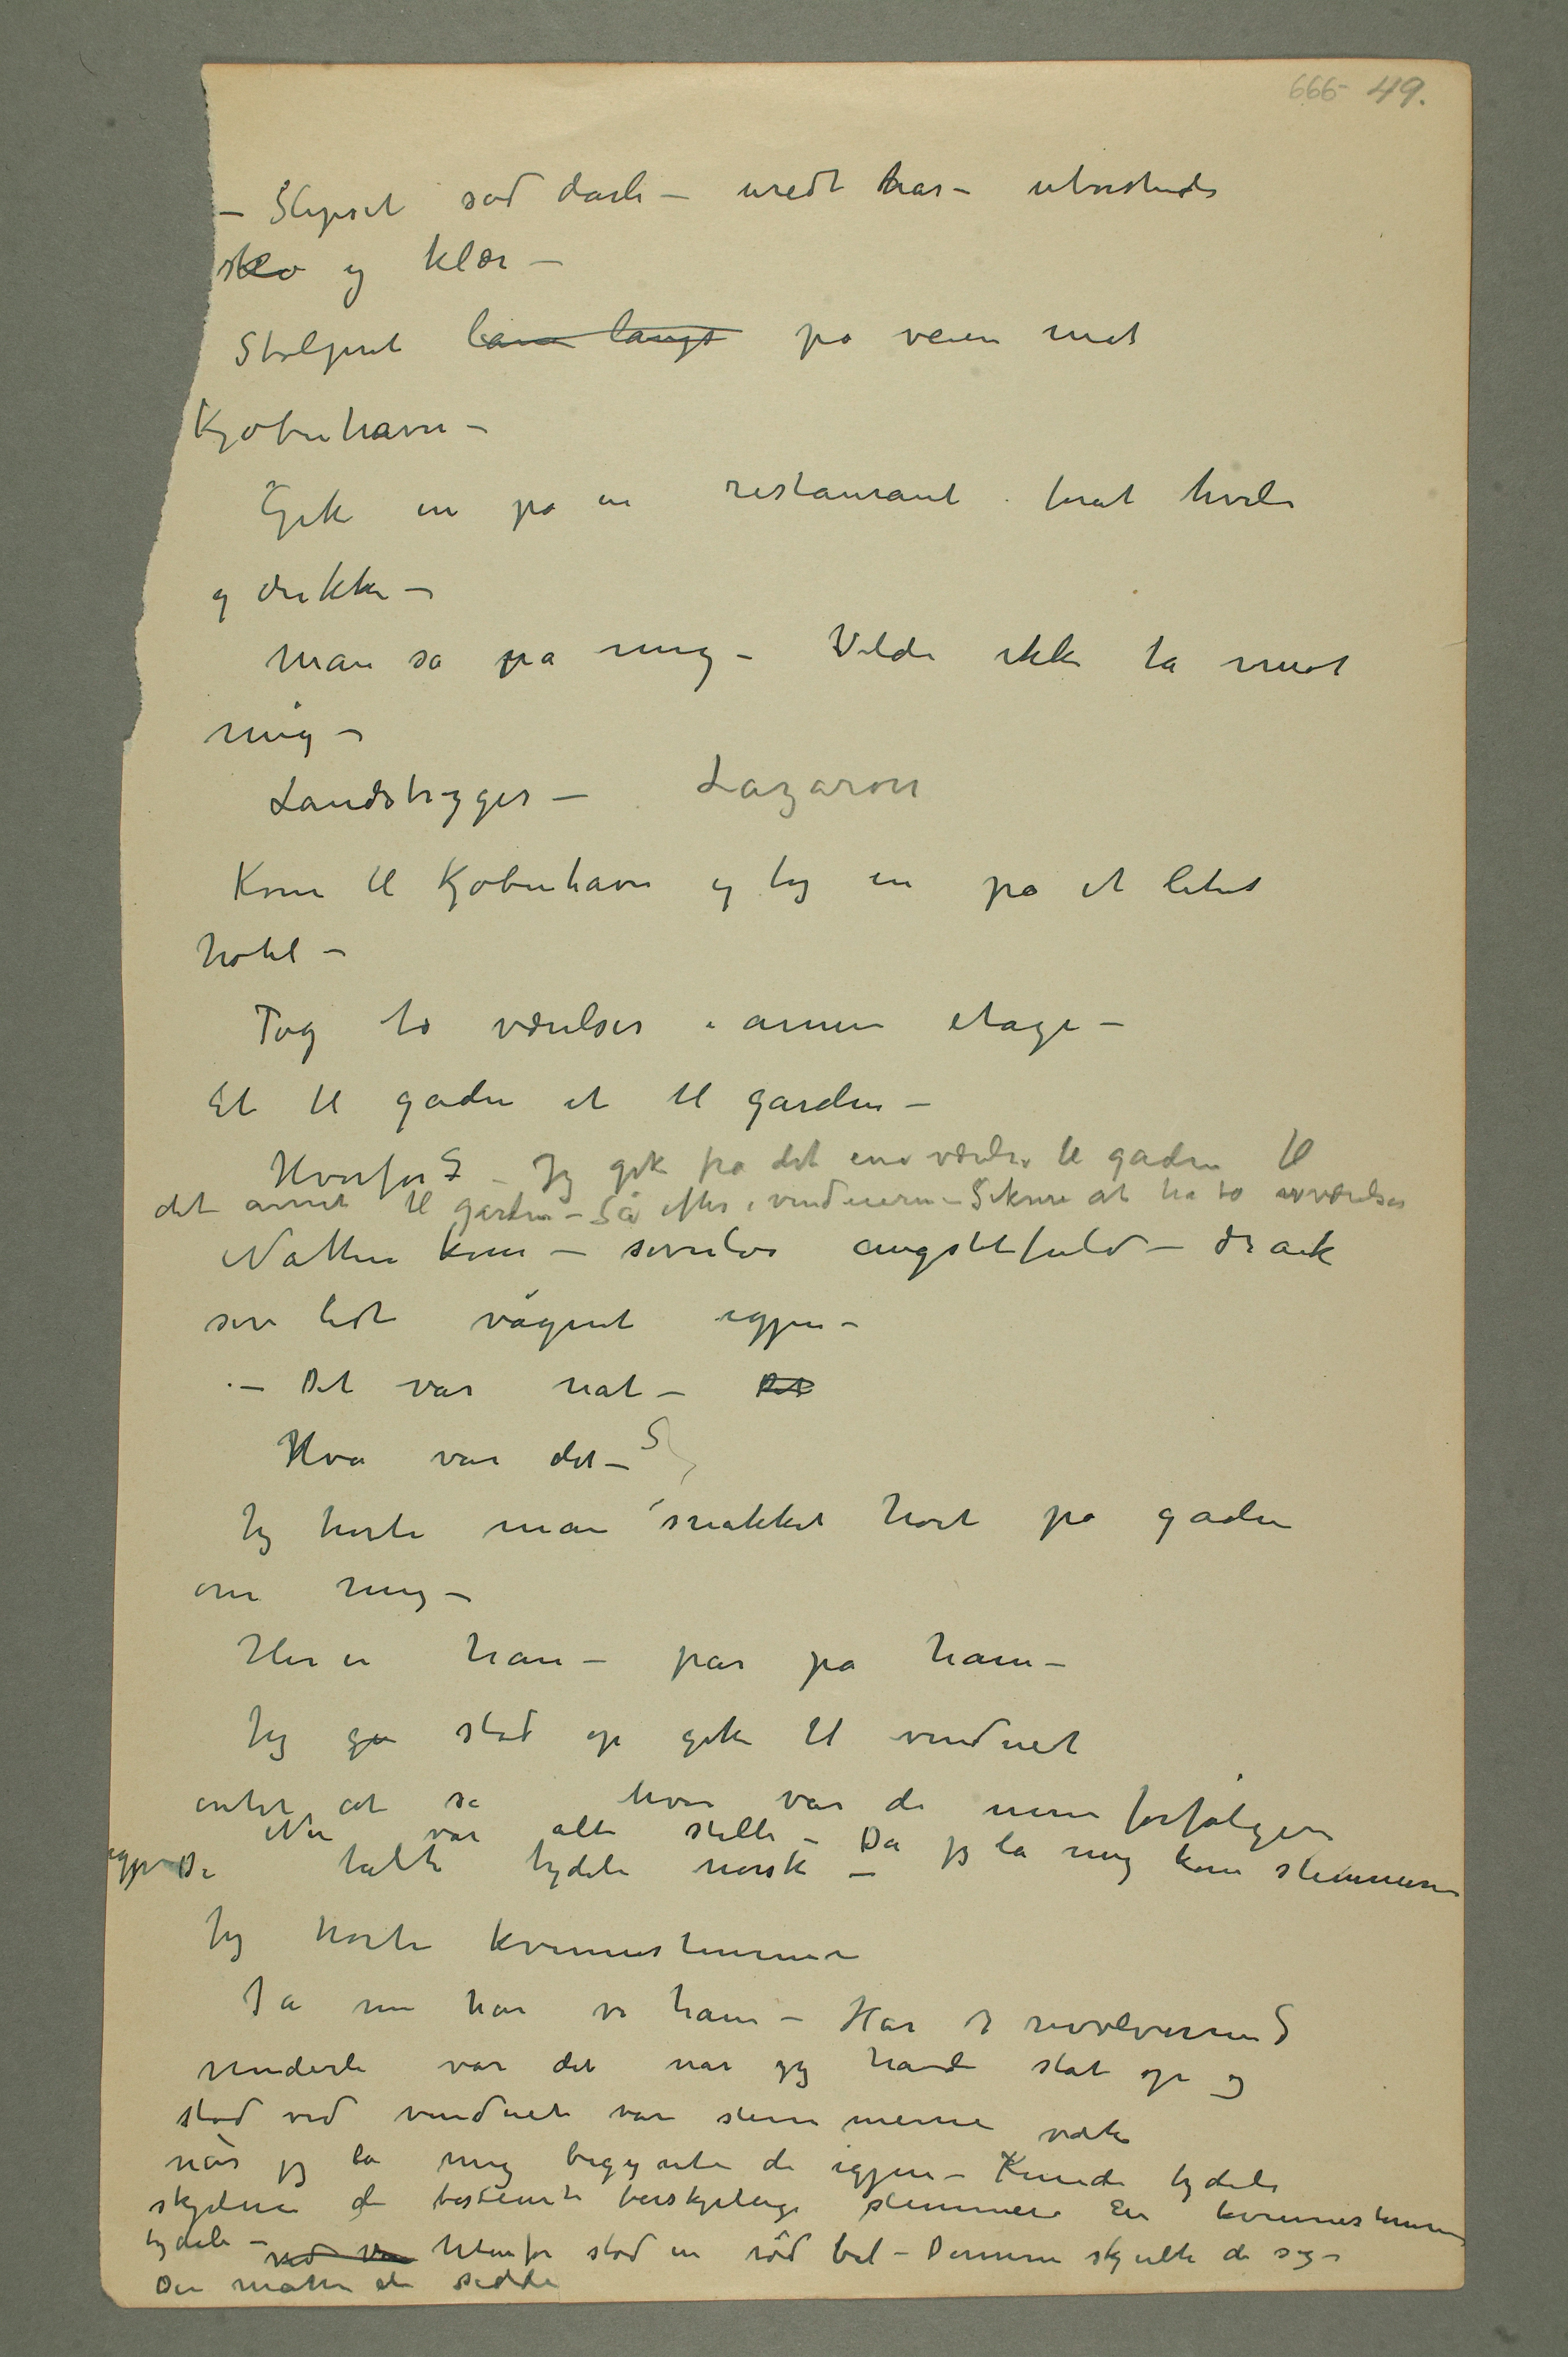 666- 49.
– Slipset sad dårli – uredt hår – ubørstede
sko og klær –
Stolpret bare langs på veien mot
Kjøbenhavn –
Gik in på en restaurant forat hvile
og drikke –
Man så på mig – Vilde ikke ta mot
mig –
Landstryger – Lazaron
Kom til Kjøbenhavn og tog in på et litet
hotel –
Tog to værelser i annen etage –
Et til gaden et til gården –
Hvorfor? – Jeg gik fra det ene værelse til gaden til
det annet til gården – Så efter i vinduerne – Sikrere at ha to værelser
Natten kom – søvnløs angstfuld – drak
sov lidt vågnet igjen –
– Det var nat – Det
Hva var det – ?
Jeg hørte man snakket høit på gaden
om mig –
Her er han – pas på ham –
Jeg stod op gik til vinduet
intet at se hvor var de mine forfølgere
Nu var alt stille – Da jeg la mig kom stemmerne
igjen De talte tydeli norsk –
Jeg hørte kvinnestemmer
Ja nu har vi ham – Har I revolveren?
Underli var det når jeg havdeståt op og
stod ved vinduet var stemmerne væk
når jeg la mig begynte de igjen – Kunde tydeli
skjelne de bestemte forskjelige stemmer En kvinnestemme
tydeli – ved Utenfor stod en rød bil – Derinne skjulte de sig –
Der måtte de sidde